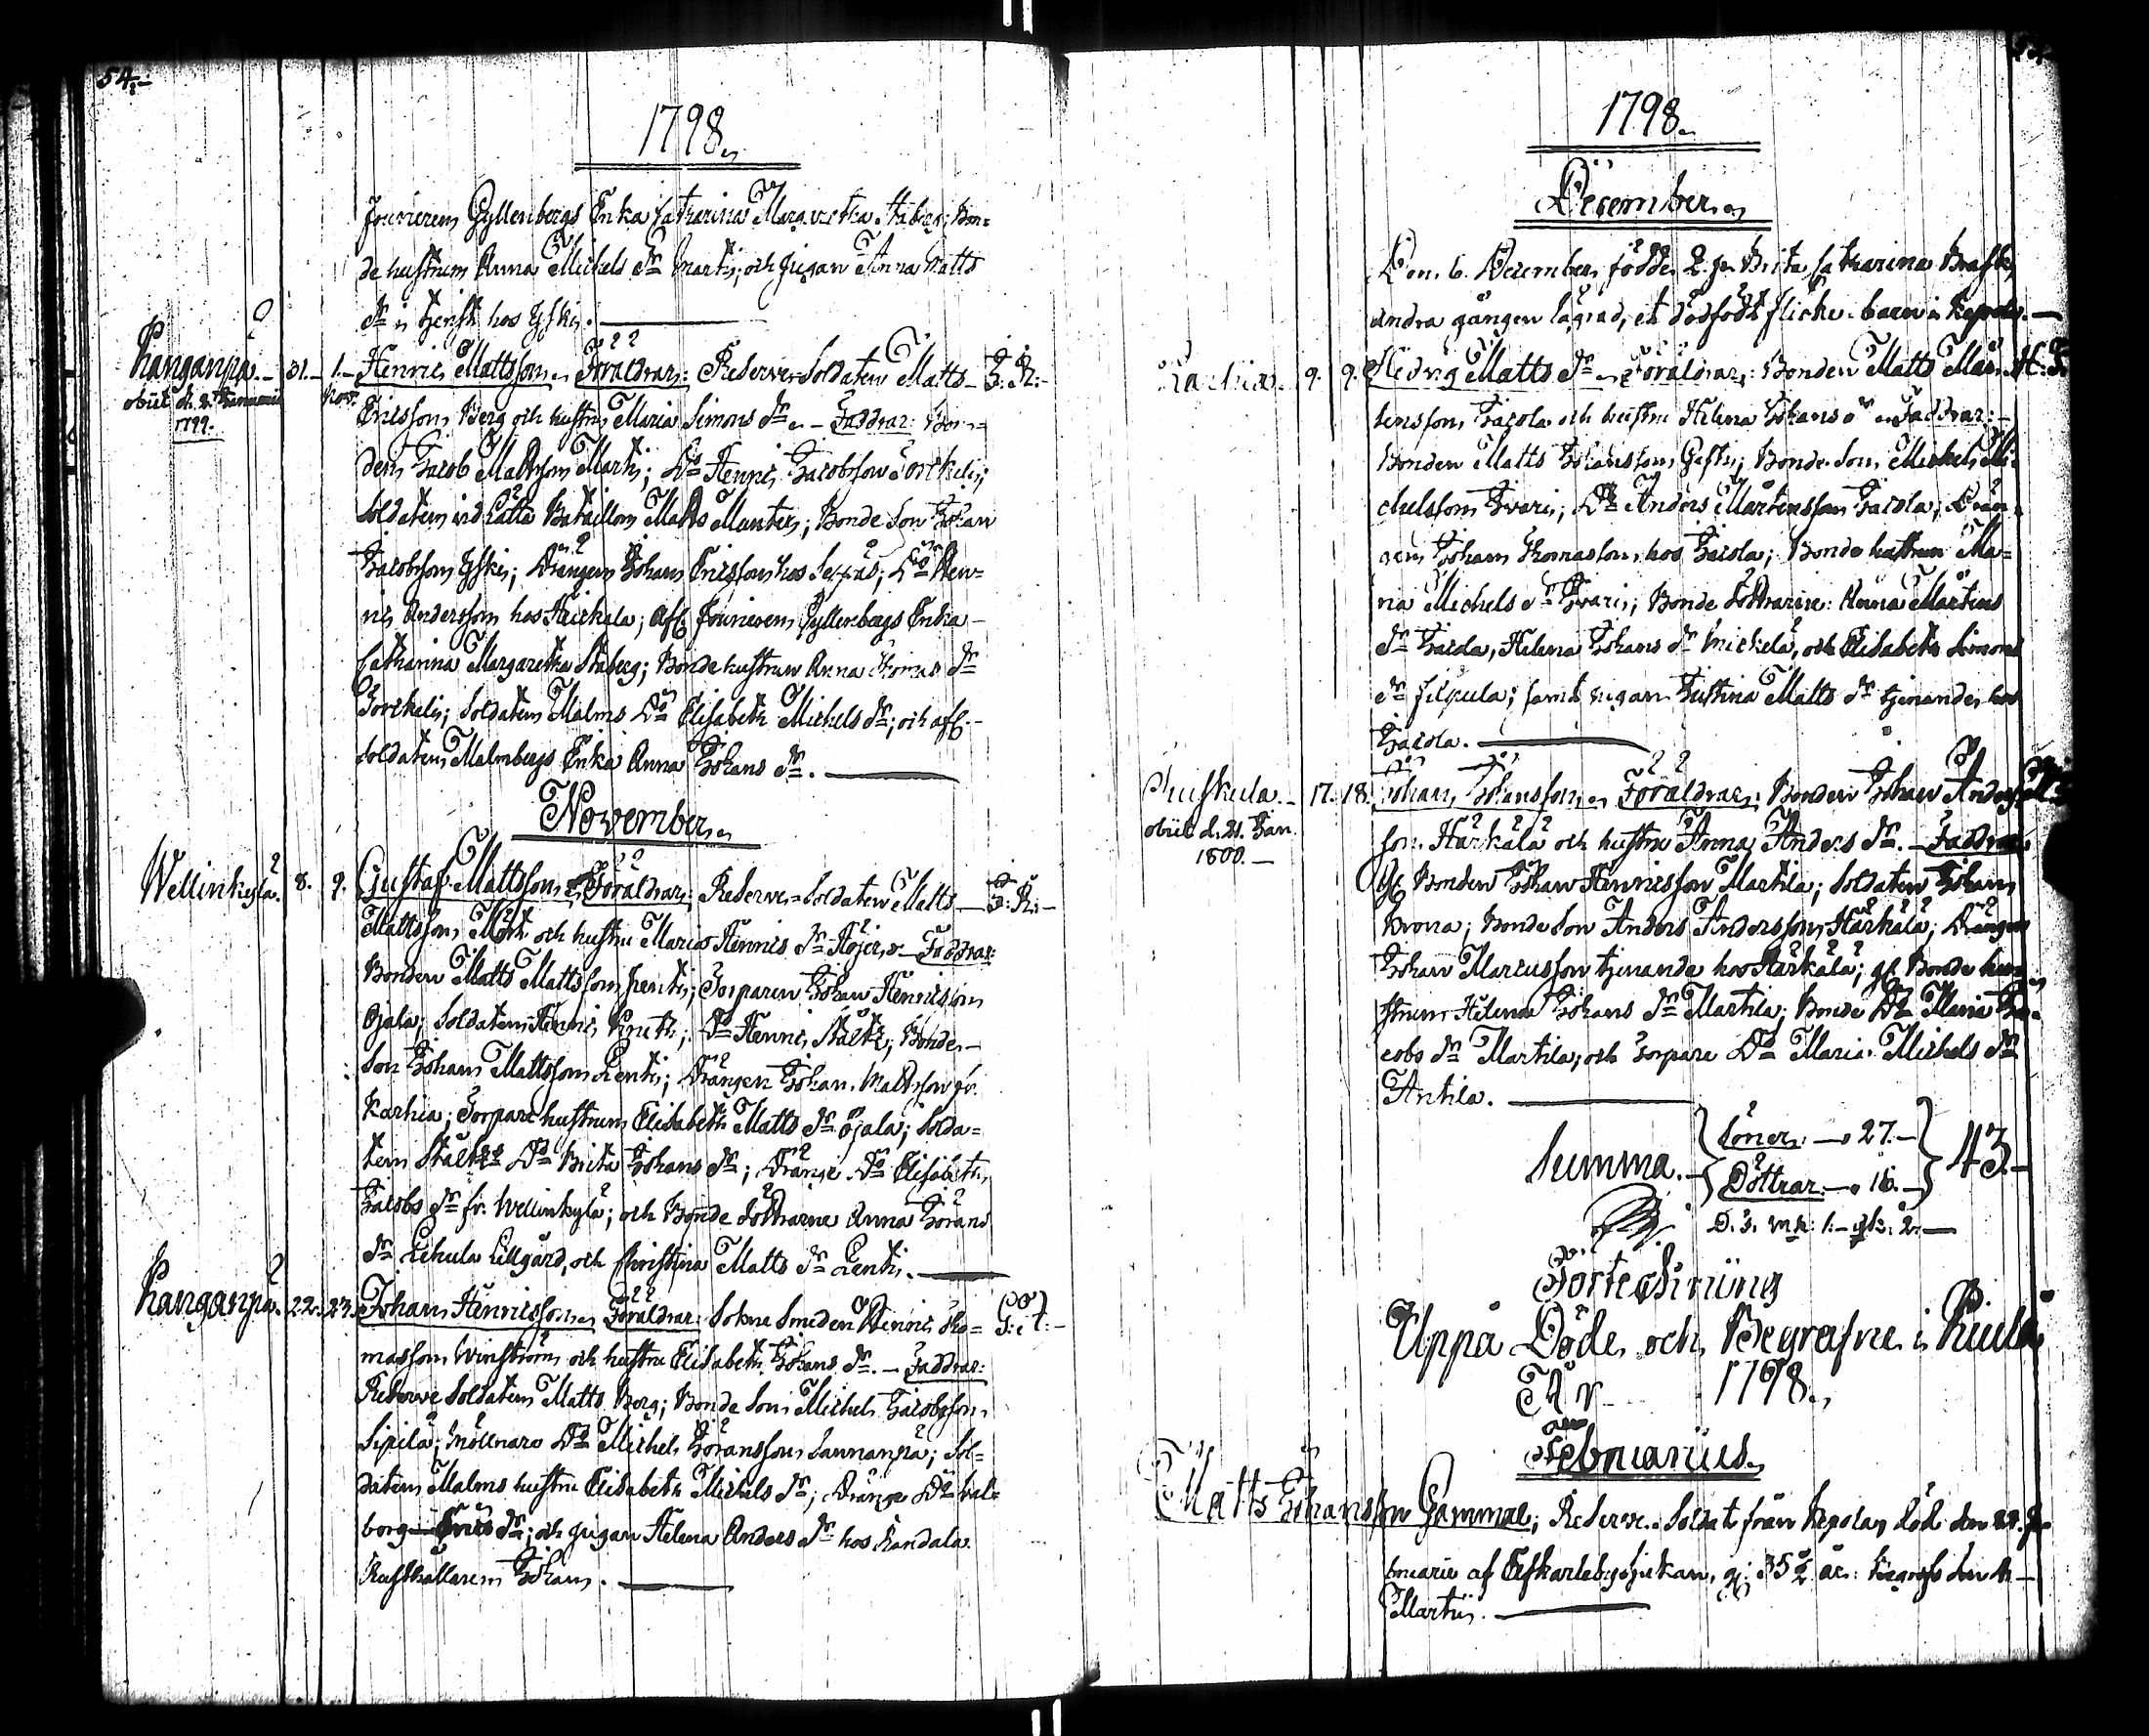 54.-
1798.
Fourierens Gyllenbergs Enka Catharina Margaretha Staberg; Bon=
de hustrun Anna Michels dr Martis; och Pigan Anna Matts
dr i tjenst hos Yskis.
Kanganpä. 31. 1. Nov. Henric Mattsson. Föräldrar: Reserve Soldaten Matts J: R:
obiit d. 2 Januarii
1799.
Ericsson Berg och hustru Maria Simons dr. Faddrar: Bon=
den Jacob Mattsson Martis; Do Henric Jacobsson Torckelis;
Soldaten vid Lätta Bataillon Matts Munter; Bonde Son Johan
Jacobsson Yskis; Drängen Johan Ericsson hos Seppäs; Do Hen=
ric Andersson hos Heickala; Afl. Fourierens Gyllenbergs Enka
Catharina Margaretha Staberg; Bonde hustrun Anna Thomas dr
Torckelis; Soldaten Malms Do Elisabeth Michels dr; och afl.
Soldaten Malmbergs Enka Anna Johans dr.
November.
Wellinkylä. 8. 9. Gustaf Mattsson. Föräldrar: Reserve=Soldaten Matts J: R:
Mattsson Mört och hustru Maria Henrics dr Höijer. Faddrar:
Bonden Matts Mattsson Pentis; Torparen Johan Henricsson
Ojala; Soldaten Henric ; Do Henric Stålt; Bonde
Son Johan Mattsson Pentis; Drängen Johan Mattsson fr.
Karhia; Torpare hustrun Elisabeth Matts dr Ojala; Solda=
ten Stålts Do Brita Johans dr; Dränge Do Elisabeth
Jacobs dr fr. Wellinkylä; och Bonde döttrarne Anna Görans
dr Lekula Lillgård, och Christina Matts dr Pentis.
Kanganpä. 22. 23. Johan Henricsson. Föräldrar: Sokne Smeden Henric Tho=
massson Winström och hustru Elisabeth Johans dr. Faddrar:
Reserve Soldaten Matts Berg; Bonde Son Michel Jacobsson
Sipilä; Möllnare Do Michel Göransson Sannanpä; Sol=
daten Malms hustru Elisabeth Michels dr; Dränge Do Wal=
borg Erics dr; och Pigan Helena Anders dr hos Randala
Rusthållaren Johan.
1798.
December.
Den 6. December födde Brita Catharina
andra gången lägrad, et dödfödt flicke-barn i Kepola.
Karhia. 9. 9. Hedvig Matts dr. Föräldrar: Bonden Matts Mår= H: J:
tensson Jacola och hustru Helena Johans dr. Faddrar:
Bonden Matts Johansson ; Bonde Son Michel Mi=
chelsson Ivaris; Do Anders Mårtensson Jacola; Drän=
gen Johan Thomasson hos Jacola; Bonde hustrun Ma=
ria Michels dr Ivaris; Bonde Döttrarne: Anna Mårtens
dr Jacola, Helena Johans dr Mickelä, och Elisabeth Simons
dr Filpula; samt pigan Justina Matts dr tjenande hos
Jacola.
17. 18. Johan Johansson. Föräldrar: Bonden Johan Anders
obiit d. 21. Jan.
1800.
son Härkälä och hustru Anna Anders dr. Faddrar:
Gl. Bonden Johan Henricsson Martila; Soldaten Johan
Brona; Bonde Son Anders Andersson Härkälä; Drängen
Johan Marcusson tjenande hos Härkälä; gl. Bonde hu=
strun Helena Johans dr Martila; Bonde Do Maria Ja=
cobs dr Martila; och Torpare Do Maria Michels dr
Antila.
Summa. Söner 27. Döttrar 16. 43.
Förteckning
Uppå Döde och Begrafne i Kiula
År 1798.
Februarius.
Matts Johansson Gammal; Reserve-Soldat från Kepola, död den 22. Fe=
bruarii af sjukan, gl. 35 1/2 år: begrofs den 4
Martii.